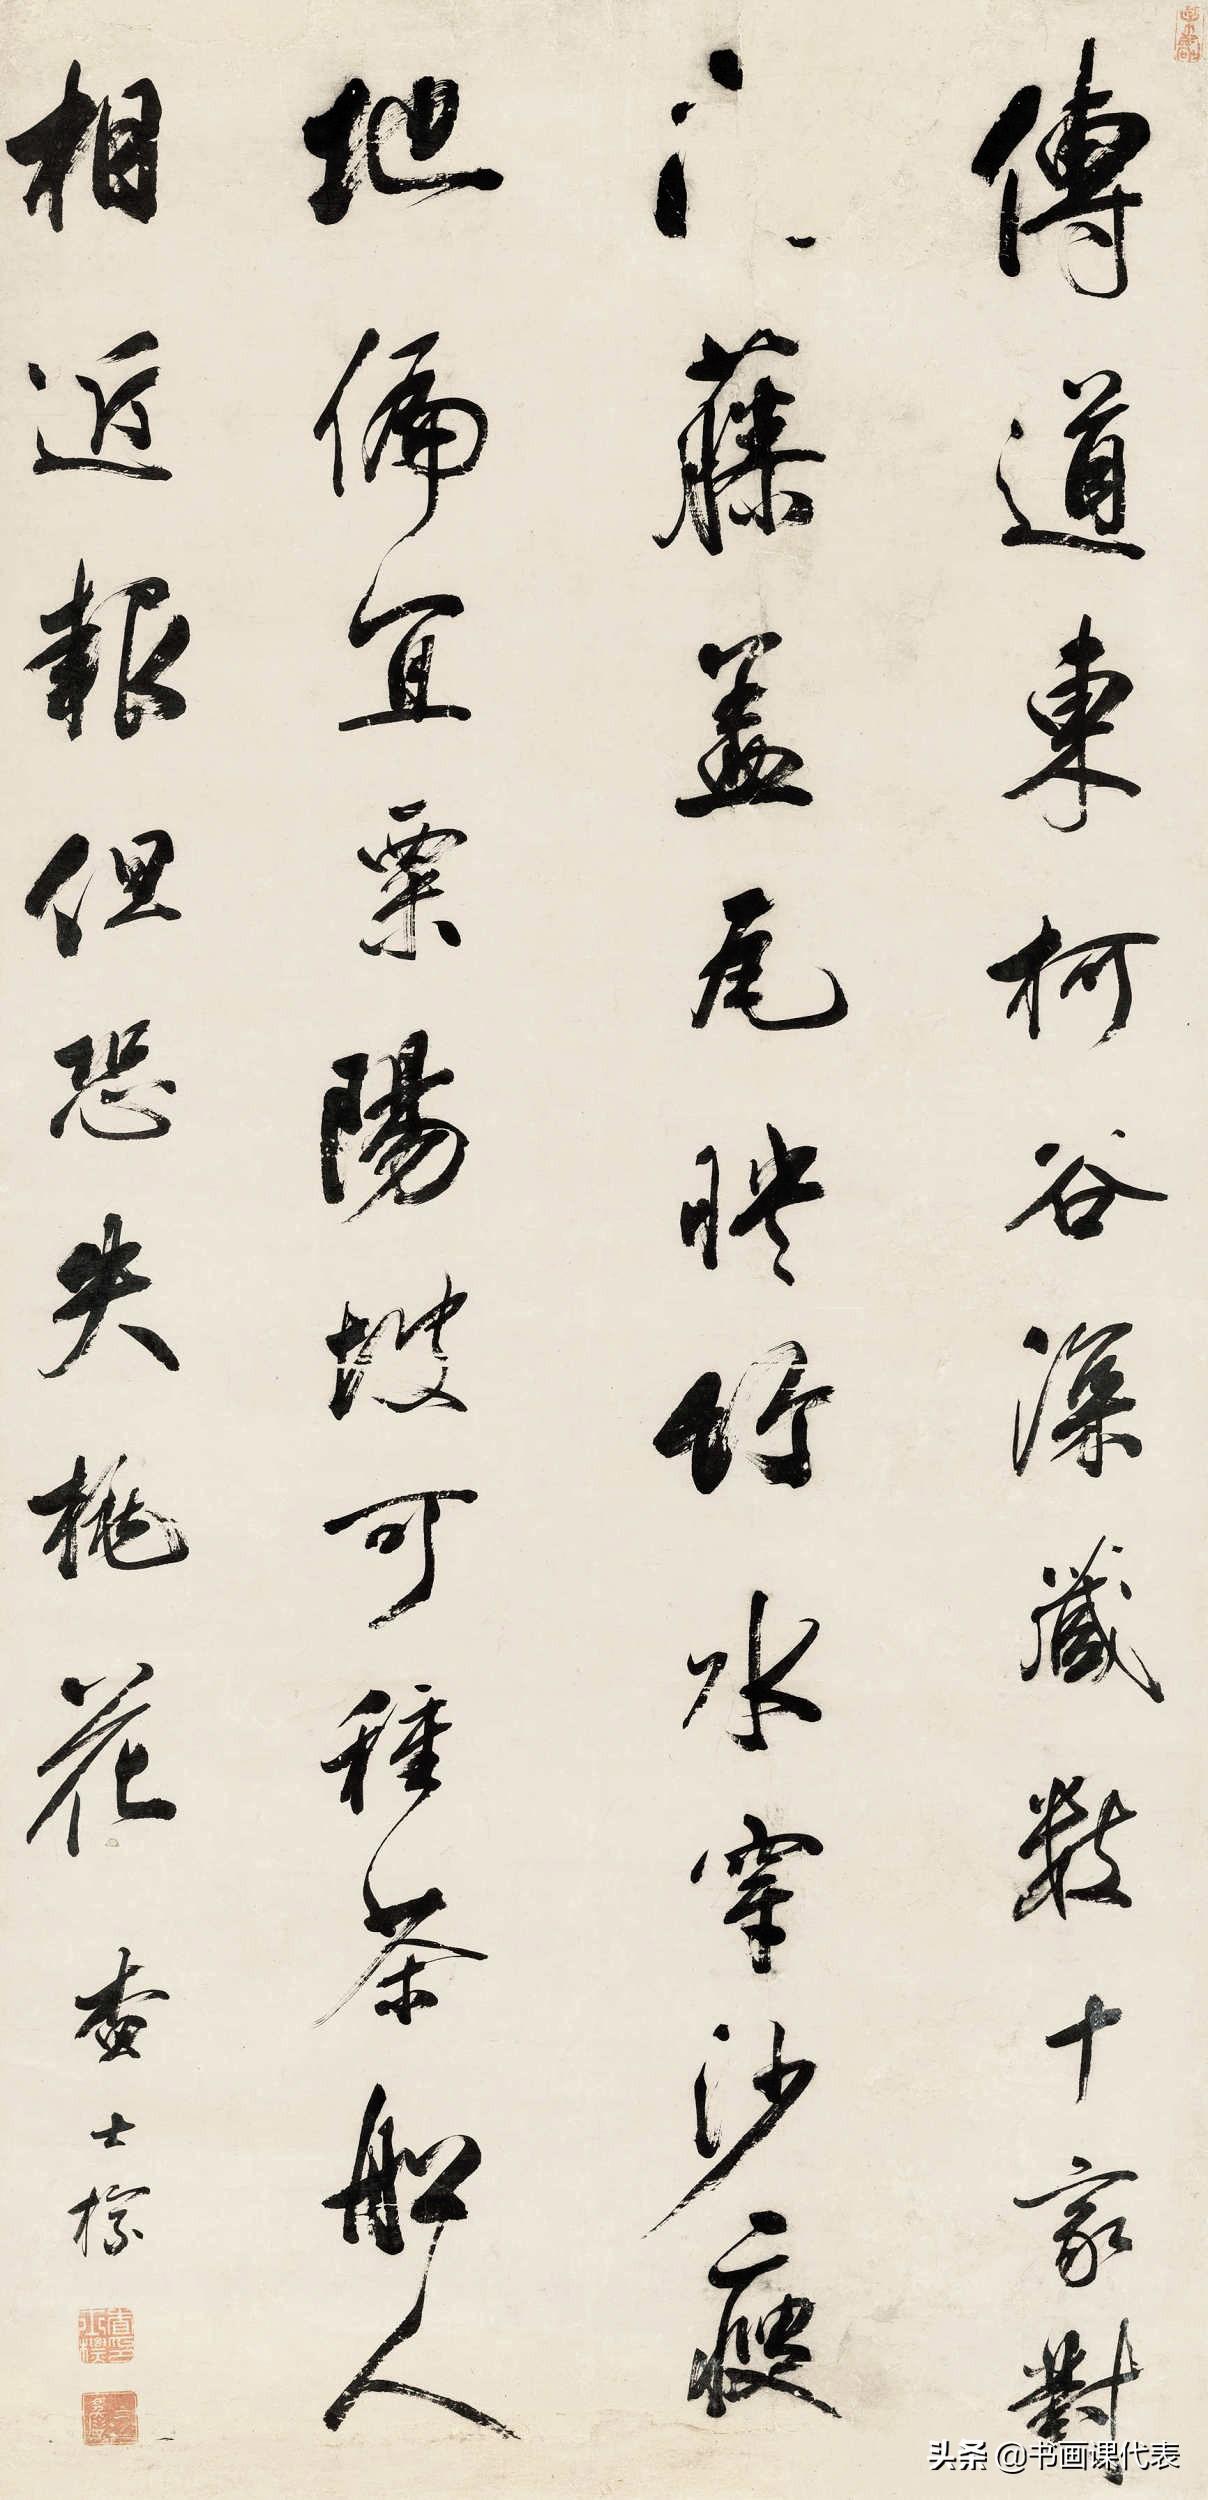 傳道東柯谷深藏數十家對
門藤蓋瓦映竹水穿沙瘦
地偏宜粟陽坡可種茶船人
相近報但恐失桃花
查士標
头条 @书画课代表